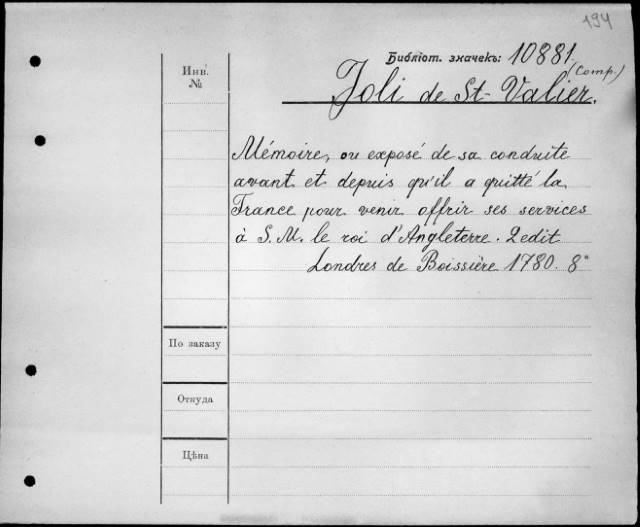 194
Библіот. значекъ: 10881.
(Comp.)
Инв.
№
Joli de St-Valier.
Mémoire, ou exposé de sa conduite
avant et depuis qu'il a quitté la
France pour venir offrir ses services
à S. M. le roi d'Angleterre. 2edit
Londres de Boissière 1780. 8°
По заказу
Откуда
Цѣна